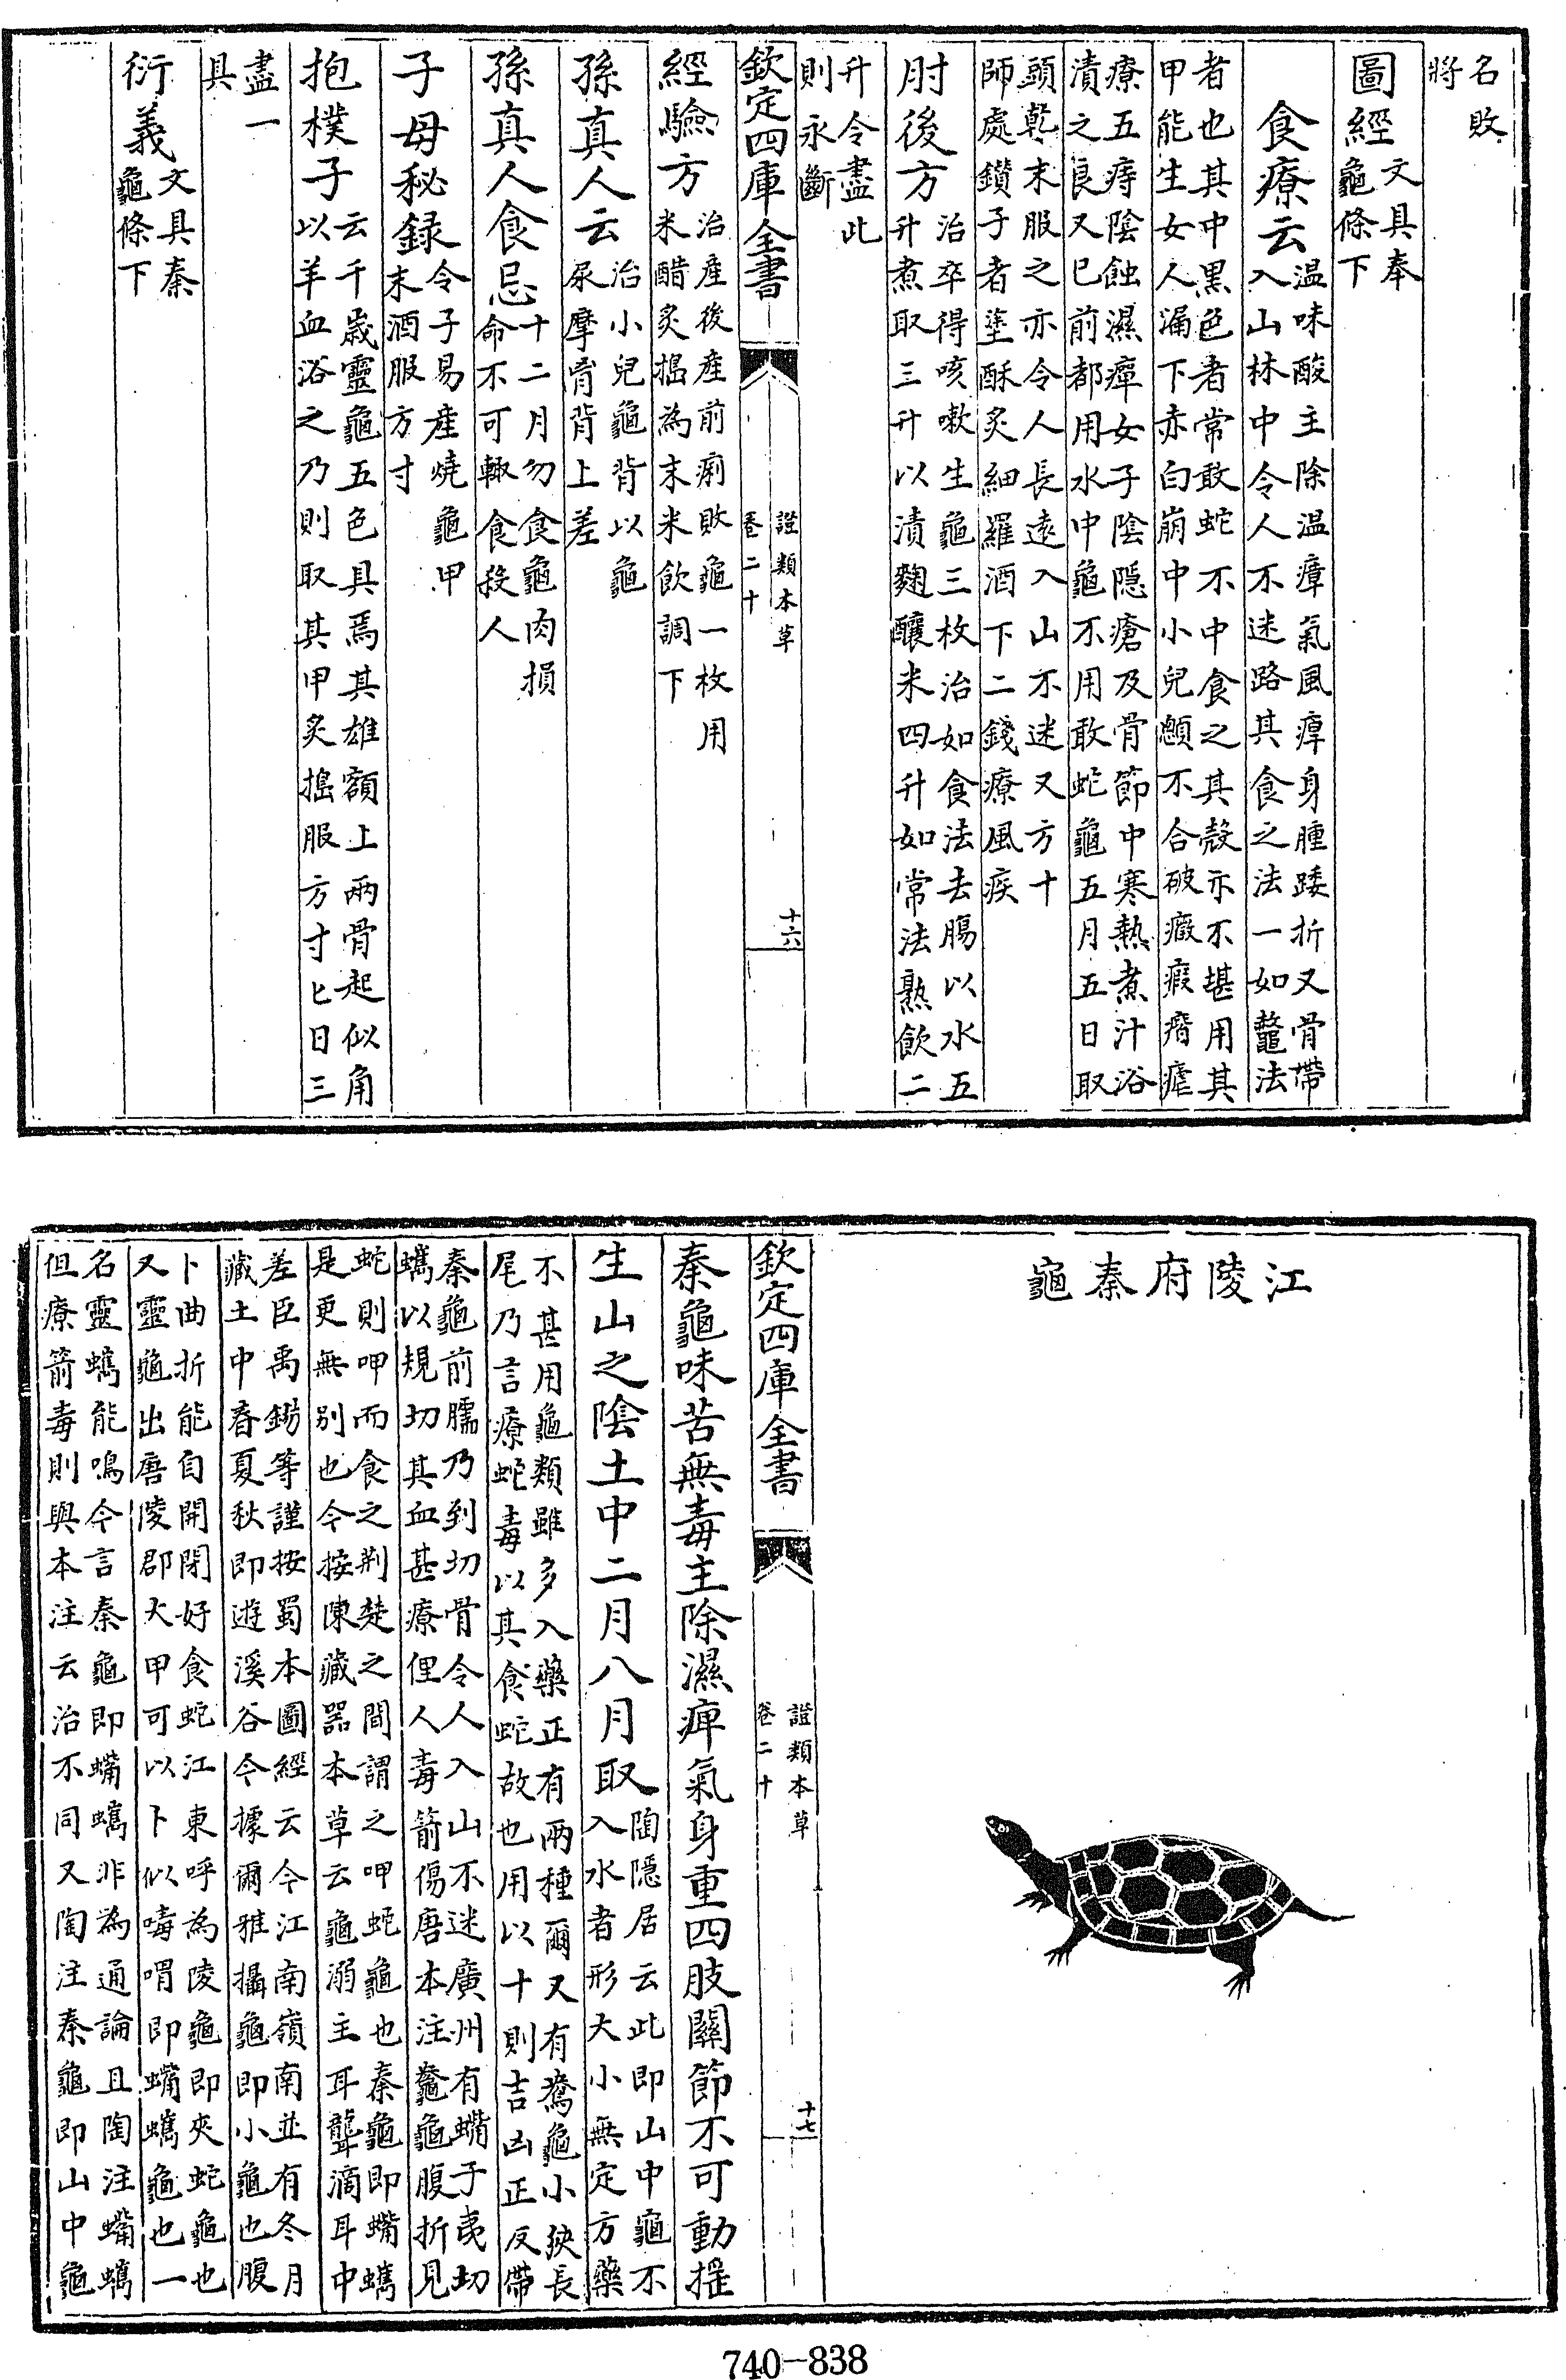 名敗
將
圖經文具奉
龜條下
食療云温味酸主除温瘴氣風痺身腫踒折又骨帶
入山林中令人不迷路其食之法一如鼈法
者也其中黑色者常敢蛇不中食之其殻亦不堪用其
甲能生女人漏下赤白崩中小兒顱不合破癥瘕痎瘧
療五痔陰蝕濕瘴女子陰隱瘡及骨節中寒熱煮汁浴
漬之良又已前都用水中龜不用敢蛇龜五月五日取
頭乾末服之亦令人長遠入山不迷又方十
師處鑚子者塗酥炙細羅酒下二錢療風疾
肘後方治卒得咳嗽生龜三枚治如食法去腸以水五
升煮取三升以漬麴釀米四升如常法熟飲二
升令盡此
則永斷
欽定四庫全書
證類本草
卷二十
十六
經驗方治產後產前痢敗龜一枚用
米醋炙搗為末米飲調下
孫真人云治小兒龜背以龜
尿摩胷背上差
孫真人食忌十二月勿食龜肉損
命不可輙食殺人
子母秘録令子易產燒龜甲
末酒服方寸
抱樸子云千歲靈龜五色具焉其雄額上兩骨起似角
以羊血浴之乃則取其甲炙搗服方寸匕日三
盡一
具
衍義文具秦
龜條下
江陵府秦龜
欽定四庫全書
證類本草
卷二十
十七
秦龜味苦無毒主除濕痺氣身重四肢關節不可動揺
生山之陰土中二月八月取陶隱居云此即山中龜不
入水者形大小無定方藥
不甚用龜類雖多入藥正有兩種爾又有鴦龜小狹長
尾乃言療蛇毒以其食蛇故也用以十則吉凶正反帶
秦龜前臑乃到切骨令人入山不迷廣州有蠵子夷切
蠵以規切其血甚療俚人毒箭傷唐本注鴦龜腹折見
蛇則呷而食之荆楚之間謂之呷蛇龜也秦龜即蠵蠵
是更無別也今按陳藏器本草云龜溺主耳聾滴耳中
差臣禹錫等謹按蜀本圖經云今江南嶺南並有冬月
藏土中春夏秋即遊溪谷今據爾雅攝龜即小龜也腹
卜曲折能自開閉好食蛇江東呼為陵龜即夾蛇龜也
又靈龜出唐陵郡大甲可以卜似𤿲喟即蠵蠵龜也一
名靈蠵能鳴今言秦龜即蠵蠵非為通論且陶注蠵蠵
但療箭毒則與本注云治不同又陶注秦龜即山中龜
740-838